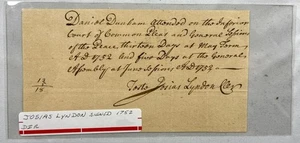 Daniel Dunham Attended on the Inferior
Court of Common Pleas and General Sessions
of the Peace thirteen Days at May Term
A:D 1752 and five Days at the General
Assembly at June Sessions A:D 1752
13
Teste Josias Lyndon Cler
JOSIAS LYNDON SIGND 1752